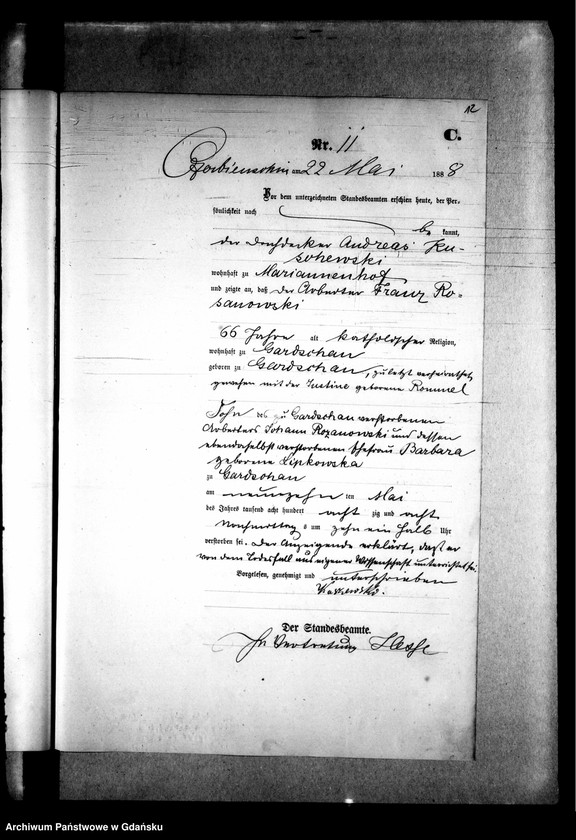 12
C.
Nr. 11
am 22 Mai 1888
Vor dem unterzeichneten Standesbeamten erschien heute, der Per-
sönlichkeit nach
be kannt,
der Dachdecker Andreas Ku-
schewski
wohnhaft zu Mariannenhof
und zeigte an, daß der Arbeiter Franz Ro-
sanowski
66 Jahre alt katholischer Religion,
wohnhaft zu Gardschau
geboren zu Gardschau, zuletzt verheirathet
gewesen mit der Justine geborene Rommel
Sohn des zu Gardschau verstorbenen
Arbeiters Johann Rozanowski und dessen
ebendaselbst verstorbenen Ehefrau Barbara
geborene Lipkowska
zu Gardschau
am neunzehn ten Mai
des Jahres tausend acht hundert acht zig und acht
Nachmittag s um zehn ein halb Uhr
verstorben sei. Der Anzeigende erklärt, daß er
von dem Todesfall aus eigener Wissenschaft unterrichtet sei.
Vorgelesen, genehmigt und unterschrieben
Der Standesbeamte.
In Vertretung
Archiwum Państwowe w Gdańsku